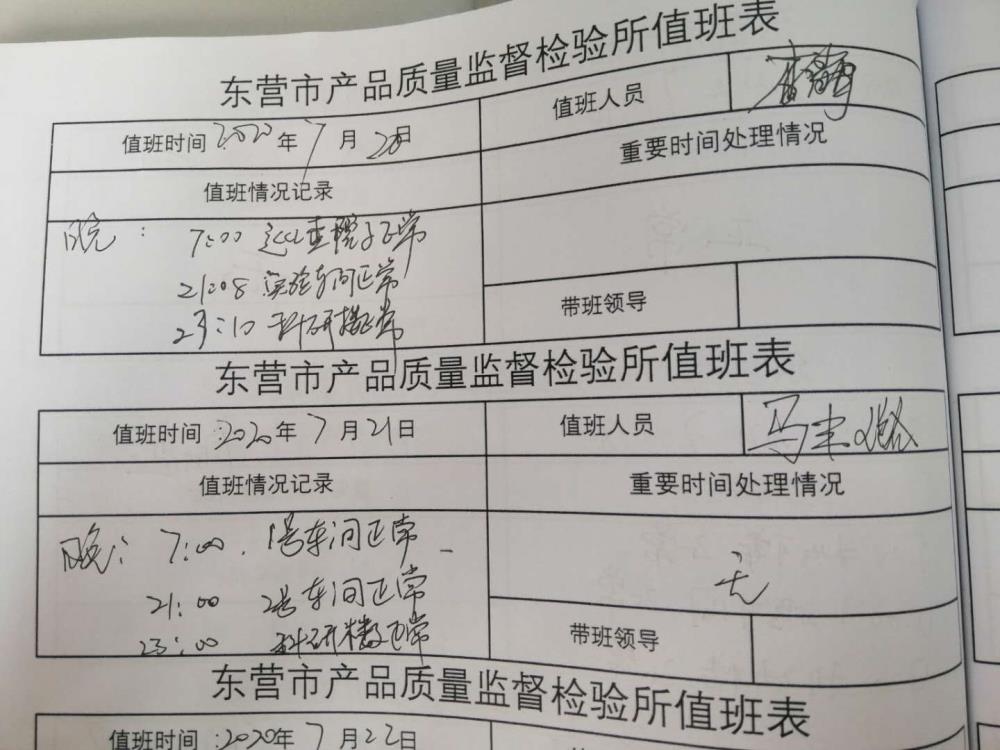 东营市产品质量监督检验所值班表
值班时间 2020年7月20日 值班人员
值班情况记录 重要时间处理情况
晚: 7:00 正常
21:08 实验车间正常
23:10 科研楼正常
带班领导
东营市产品质量监督检验所值班表
值班时间:2020年7月21日 值班人员 马
值班情况记录 重要时间处理情况
晚: 7:00. 1号车间正常
21:00 2号车间正常
无
23:00 科研楼正常
带班领导
东营市产品质量监督检验所值班表
值班时间:2020年7月22日